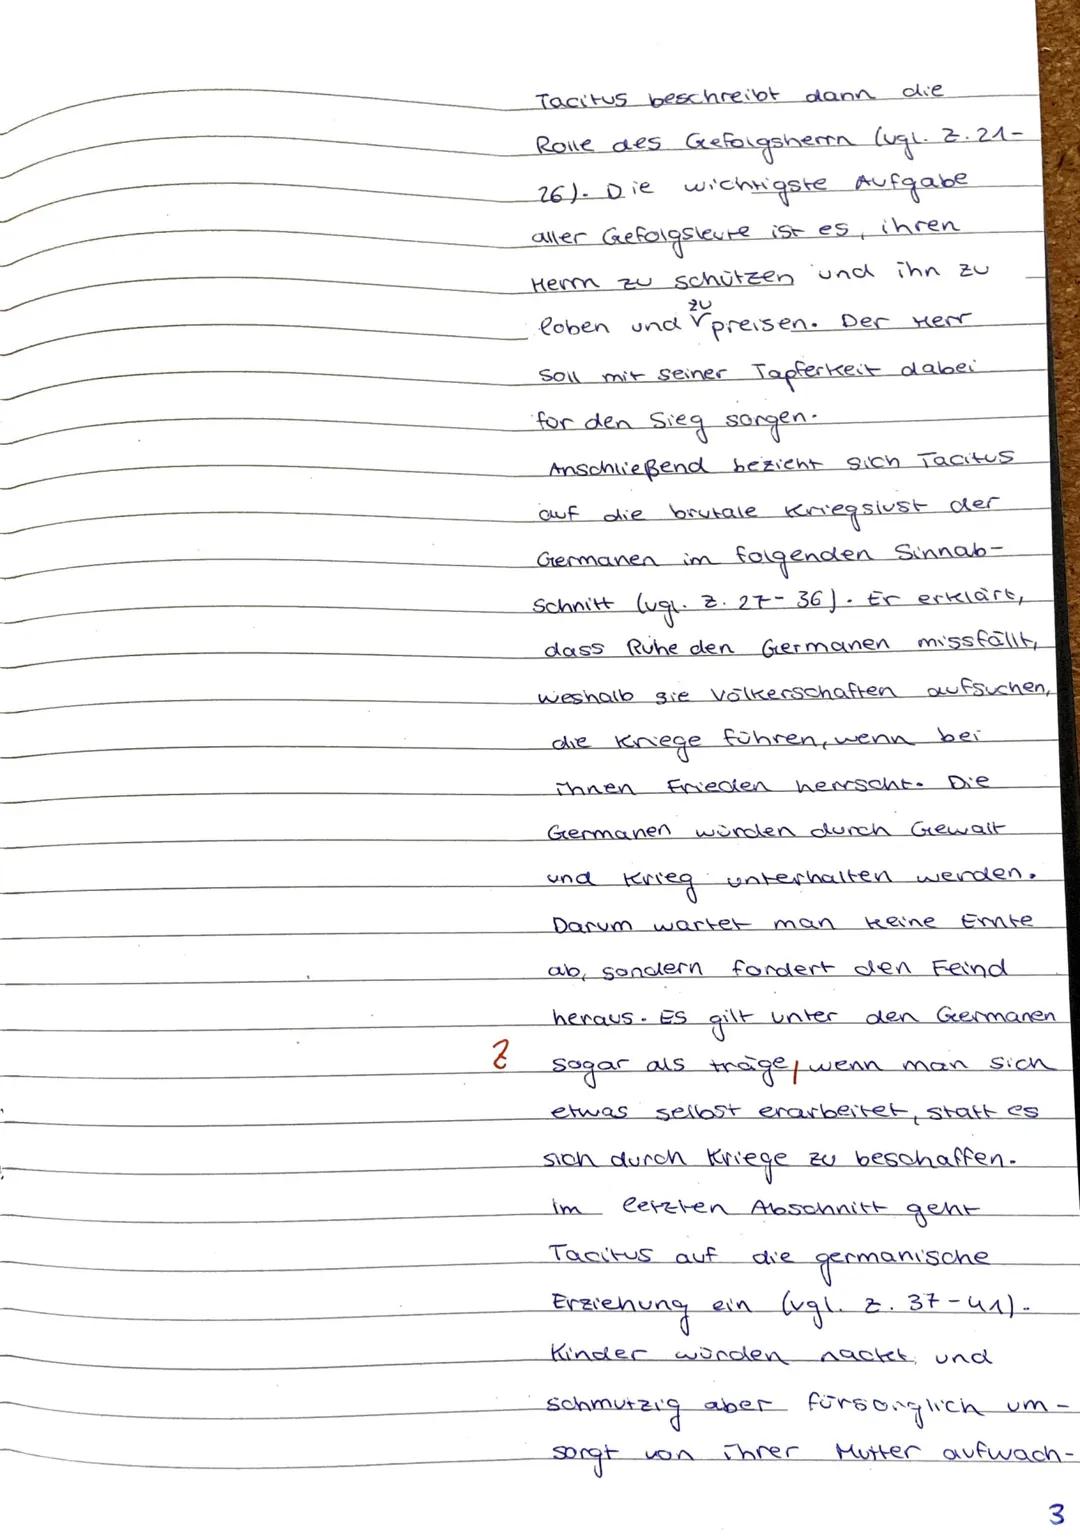 Tacitus beschreibt dann die
Rolle des Gefolgsherrn (vgl. Z. 21-
26). Die wichtigste Aufgabe
aller Gefolgsleute ist es, ihren
Herrn zu schützen und ihn zu
loben und zu preisen. Der Herr
soll mit seiner Tapferkeit dabei
für den Sieg sorgen.
Anschließend bezieht sich Tacitus
auf die brutale Kriegslust der
Germanen im folgenden Sinnab-
schnitt (vgl. Z. 27-36). Er erklärt,
dass Ruhe den Germanen missfällt,
weshalb sie Völkerschaften aufsuchen,
die Kriege führen, wenn bei
ihnen Frieden herrscht. Die
Germanen würden durch Gewalt
und Krieg unterhalten werden.
Darum wartet man keine Ernte
ab, sondern fordert den Feind
heraus. Es gilt unter den Germanen
Z sogar als träge, wenn man sich
etwas selbst erarbeitet, statt es
sich durch Kriege zu beschaffen.
Im letzten Abschnitt geht
Tacitus auf die germanische
Erziehung ein (vgl. Z. 37-41).
Kinder würden nackt und
schmutzig aber fürsorglich um-
sorgt von ihrer Mutter aufwach-
3